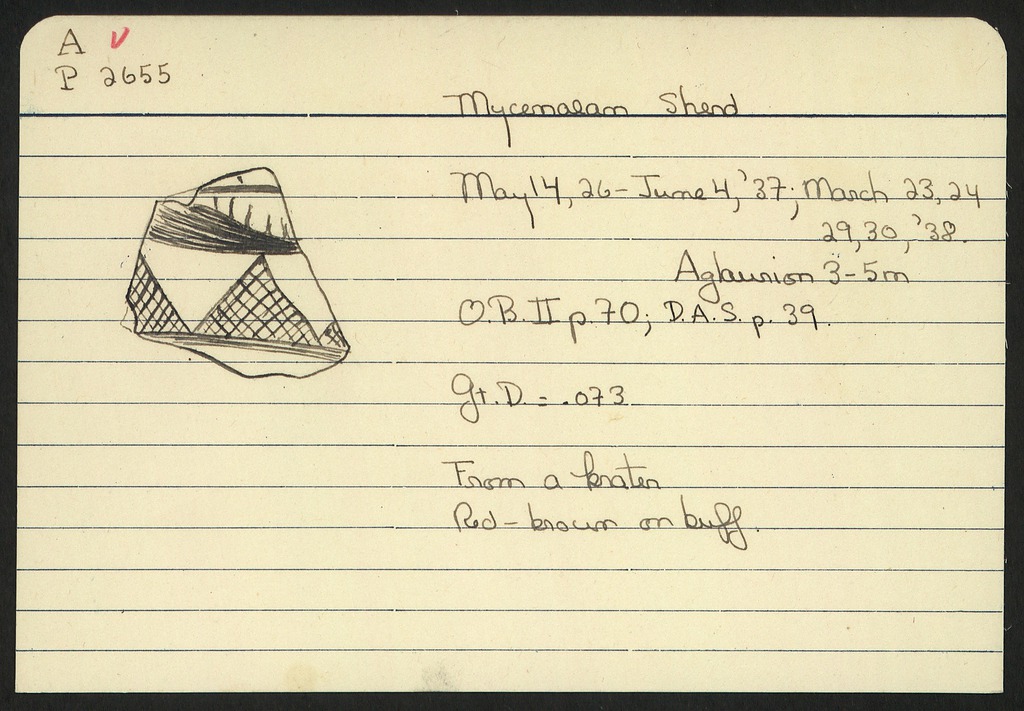 A V
P 2655
Mycenaean Sherd
May 14, 26 - June 4, '37; March 23, 24
29, 30, '38.
Aglaurion 3-5m
O.B. II p. 70; D.A.S. p. 39.
Gt. D. = .073
From a krater
Red-brown on buff.